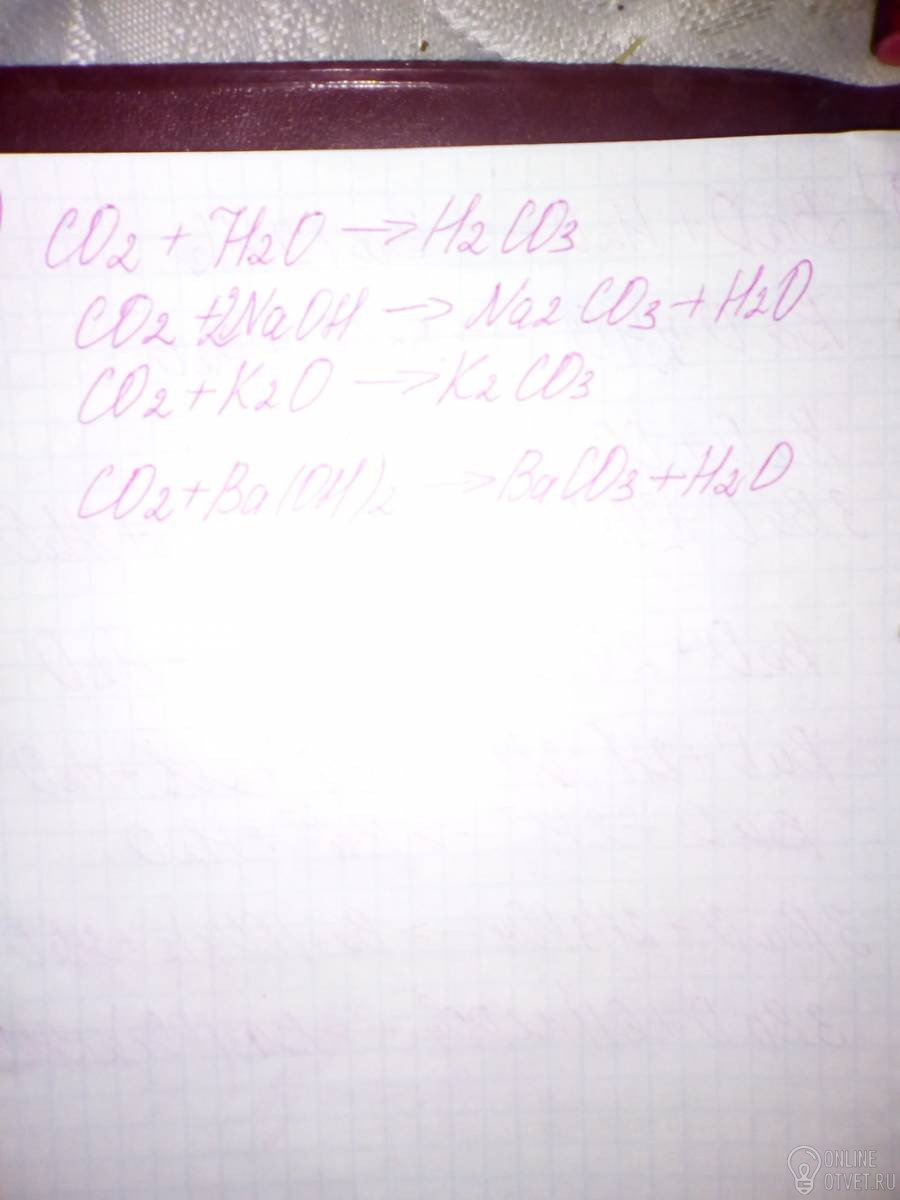 CO2 + H2O → H2CO3
CO2 + 2NaOH → Na2CO3 + H2O
CO2 + K2O → K2CO3
CO2 + Ba(OH)2 → BaCO3 + H2O
ONLINE
OTVET.RU